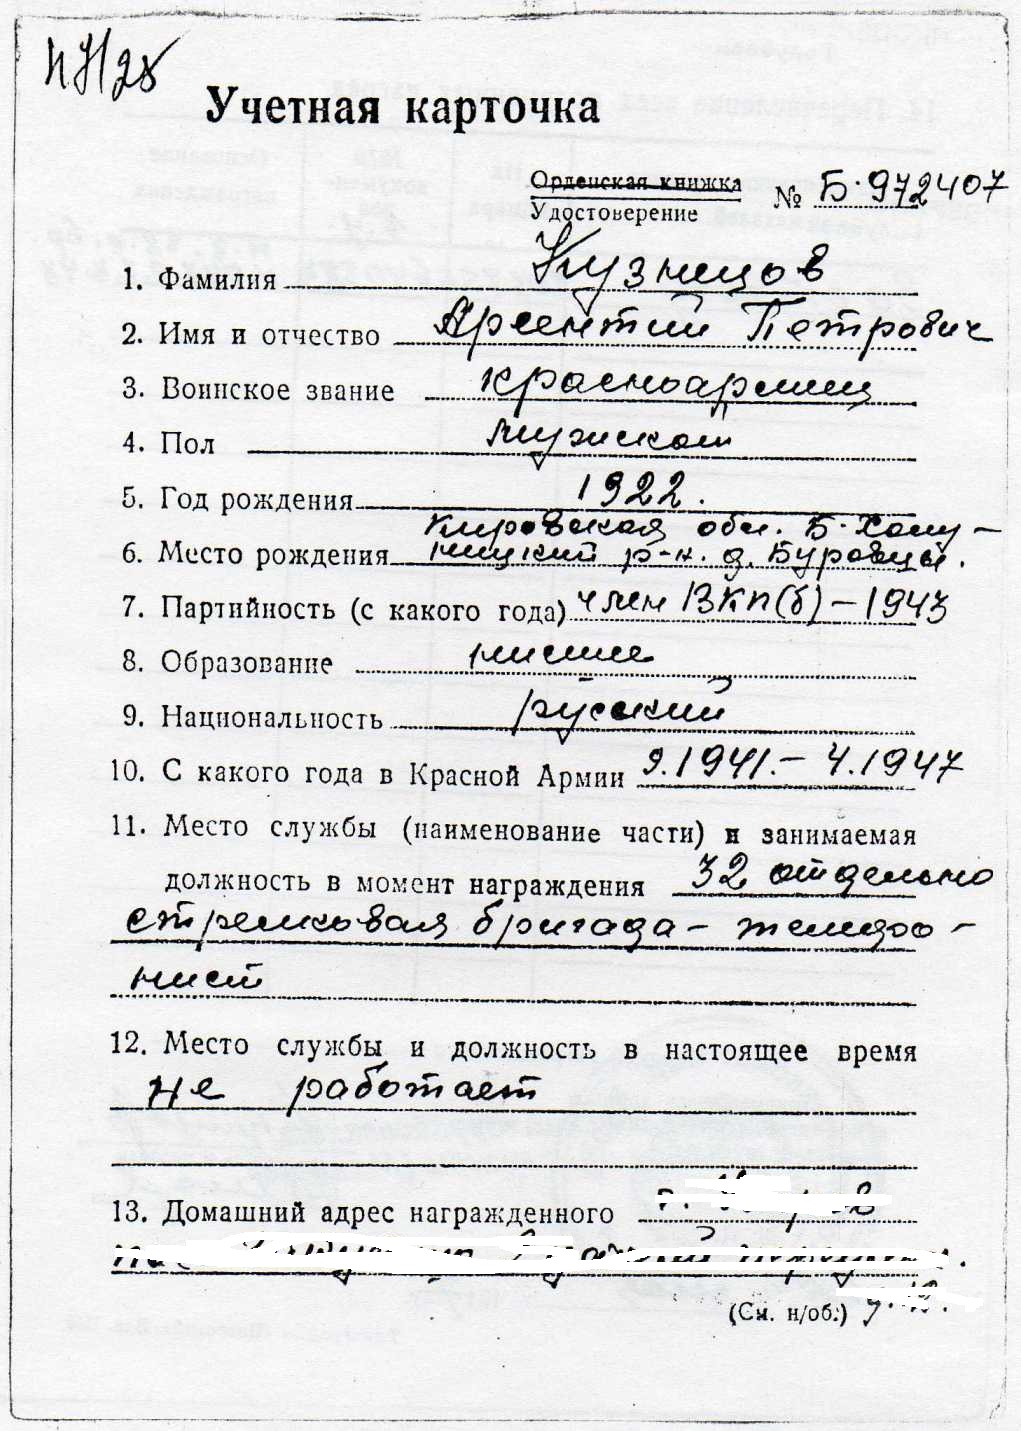 Учетная карточка
Орденская книжка
Удостоверение
№ Б·972407
1. Фамилия Кузнецов
2. Имя и отчество Арсентий Петрович
3. Воинское звание красноармеец
4. Пол мужской
5. Год рождения 1922.
Кировская обл. Б·Холу-
6. Место рождения ницкий р-н. д. Буровцы.
7. Партийность (с какого года) член ВКП(б) – 1943
8. Образование низшее
9. Национальность русский
10. С какого года в Красной Армии 9.1941. – 4.1947
11. Место службы (наименование части) и занимаемая
должность в момент награждения 32 отдельно
стрелковая бригада –
нист
12. Место службы и должность в настоящее время
не работает
13. Домашний адрес награжденного
(См. н/об.)